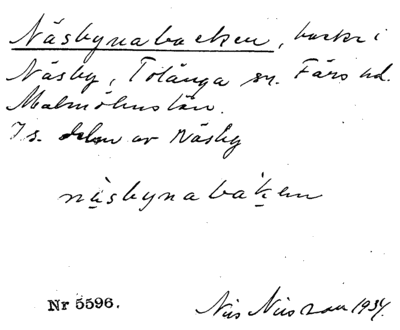 Näsbynabacken, backe i
Näsby, Tolånga sn. Färs hd.
Malmöhus län.
I s. delen av Näsby
näsbynabaken
Nr 5596.
Nils Nilsson 1934.